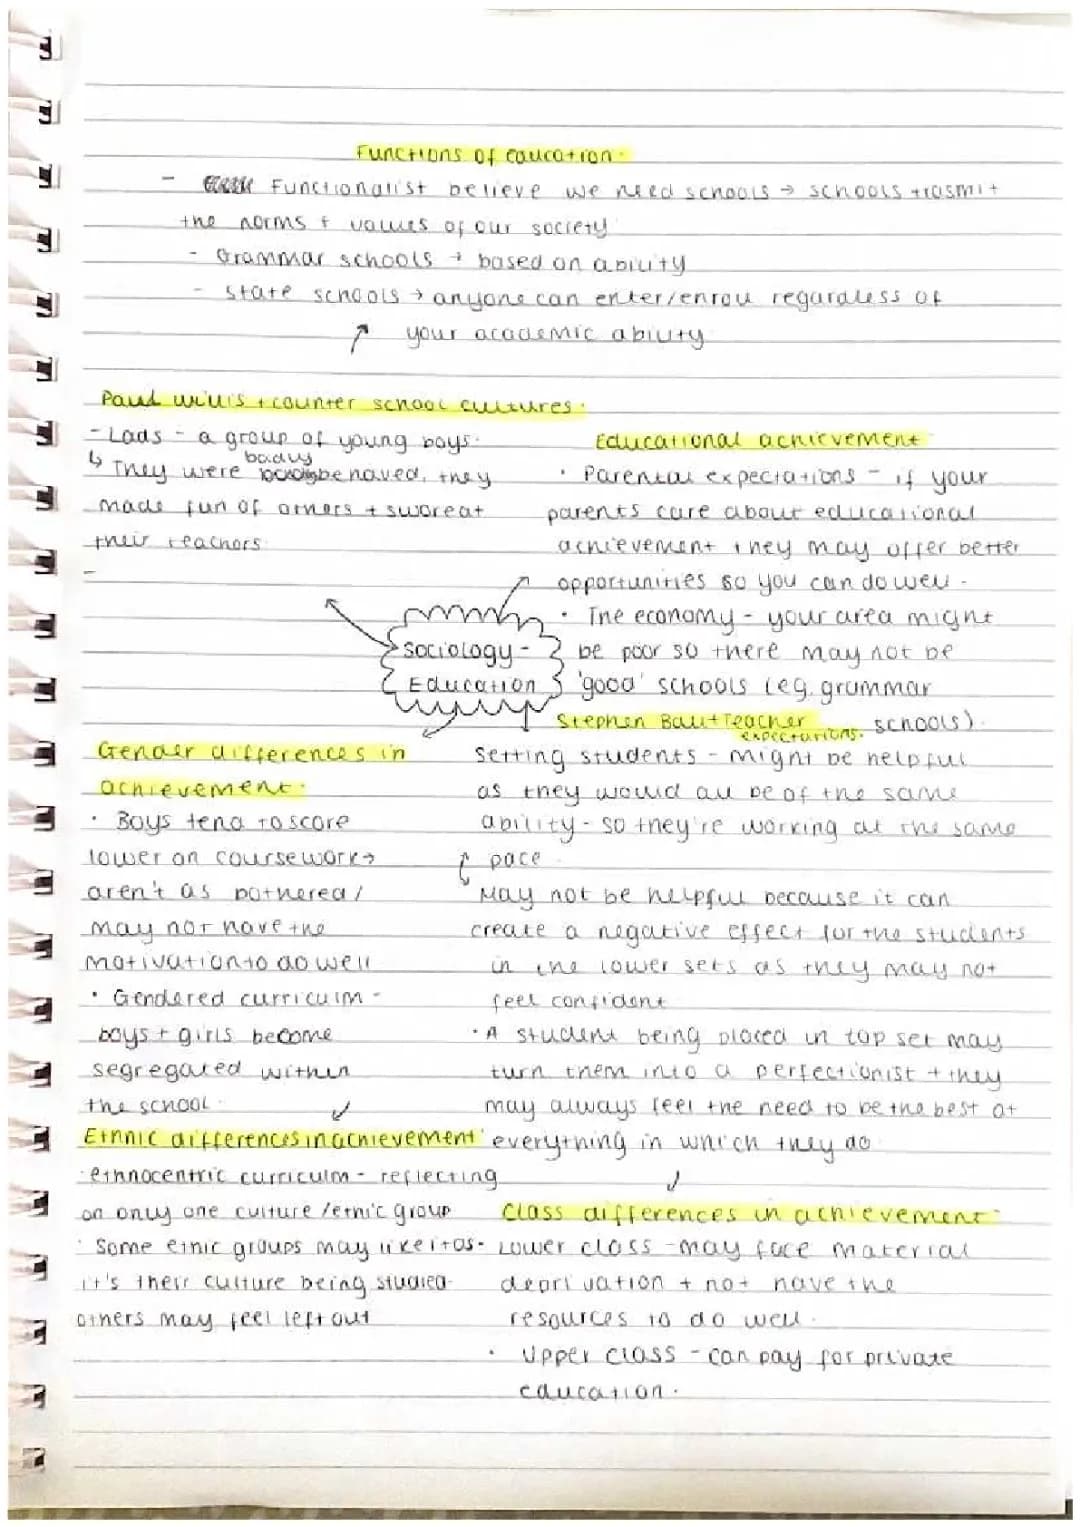 Functions of education.
- Functionalist believe we need schools → schools trasmit
the norms + values of our society
- Grammar schools → based on ability
- State schools → anyone can enter/enroll regardless of
your academic ability
Paul willis + counter school cultures.
- Lads - a group of young boys.
badly
↳ They were behaved, they
made fun of others + swore at
their teachers
-
Educational achievement
• Parental expectations - if your
parents care about educational
achievement they may offer better
opportunities so you can do well.
• The economy - your area might
be poor so there may not be
'good' schools (eg. grammar
schools).
Sociology -
Education
Stephen Ball + Teacher
expectations.
Setting students - might be helpful
as they would all be of the same
ability - so they're working at the same
pace.
May not be helpful because it can
create a negative effect for the students
in the lower sets as they may not
feel confident
• A student being placed in top set may
turn them into a perfectionist + they
may always feel the need to be the best at
everything in which they do
Gender differences in
achievement.
• Boys tend to score
lower on coursework →
aren't as bothered /
may not have the
motivation to do well
• Gendered curriculm -
boys + girls become
segregated within
the school.
Ethnic differences in achievement
• ethnocentric curriculm - reflecting
on only one culture / ethic group
• Some ethic groups may like it as
it's their culture being studied
others may feel left out
Class differences in achievement
• Lower class - may face material
deprivation + not have the
resources to do well.
• Upper class - can pay for private
education.